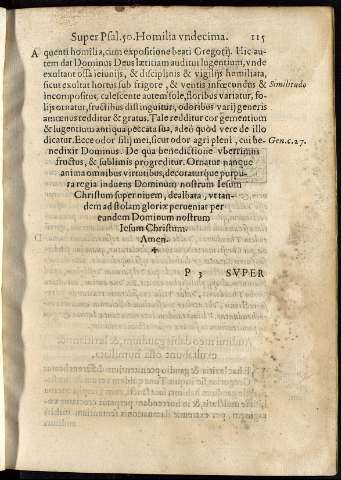 Super Psal. 50. Homilia vndecima. 115
A quenti homilia, cum expositione beati Gregorij. Hic au-
tem dat Dominus Deus lætitiam auditui lugentium, vnde
exultant ossa ieiunijs, & disciplinis & vigilijs humiliata,
sicut exultat hortus sub frigore, & ventis infecundus & Similitudo
incompositus, calescente autem sole, floribus variatur, fo-
lijs ornatur, fructibus distinguitur, odoribus varij generis
amœnus redditur & gratus. Tale redditur cor gementium
& lugentium antiqua peccata sua, adeò quod vere de illo
dicatur. Ecce odor filij mei, sicut odor agri pleni, cui be- Gen. c. 27.
nedixit Dominus. De qua benedictione vberrimus
fructus, & sublimis progreditur. Ornatur nanque
anima omnibus virtutibus, decoraturque purpu-
ra regia induens Dominum nostrum Iesum
Christum super niuem, dealbata, vt tan-
dem ad stolam gloriæ perueniat per
eundem Dominum nostrum
Iesum Christum.
Amen.
P 3 SVPER